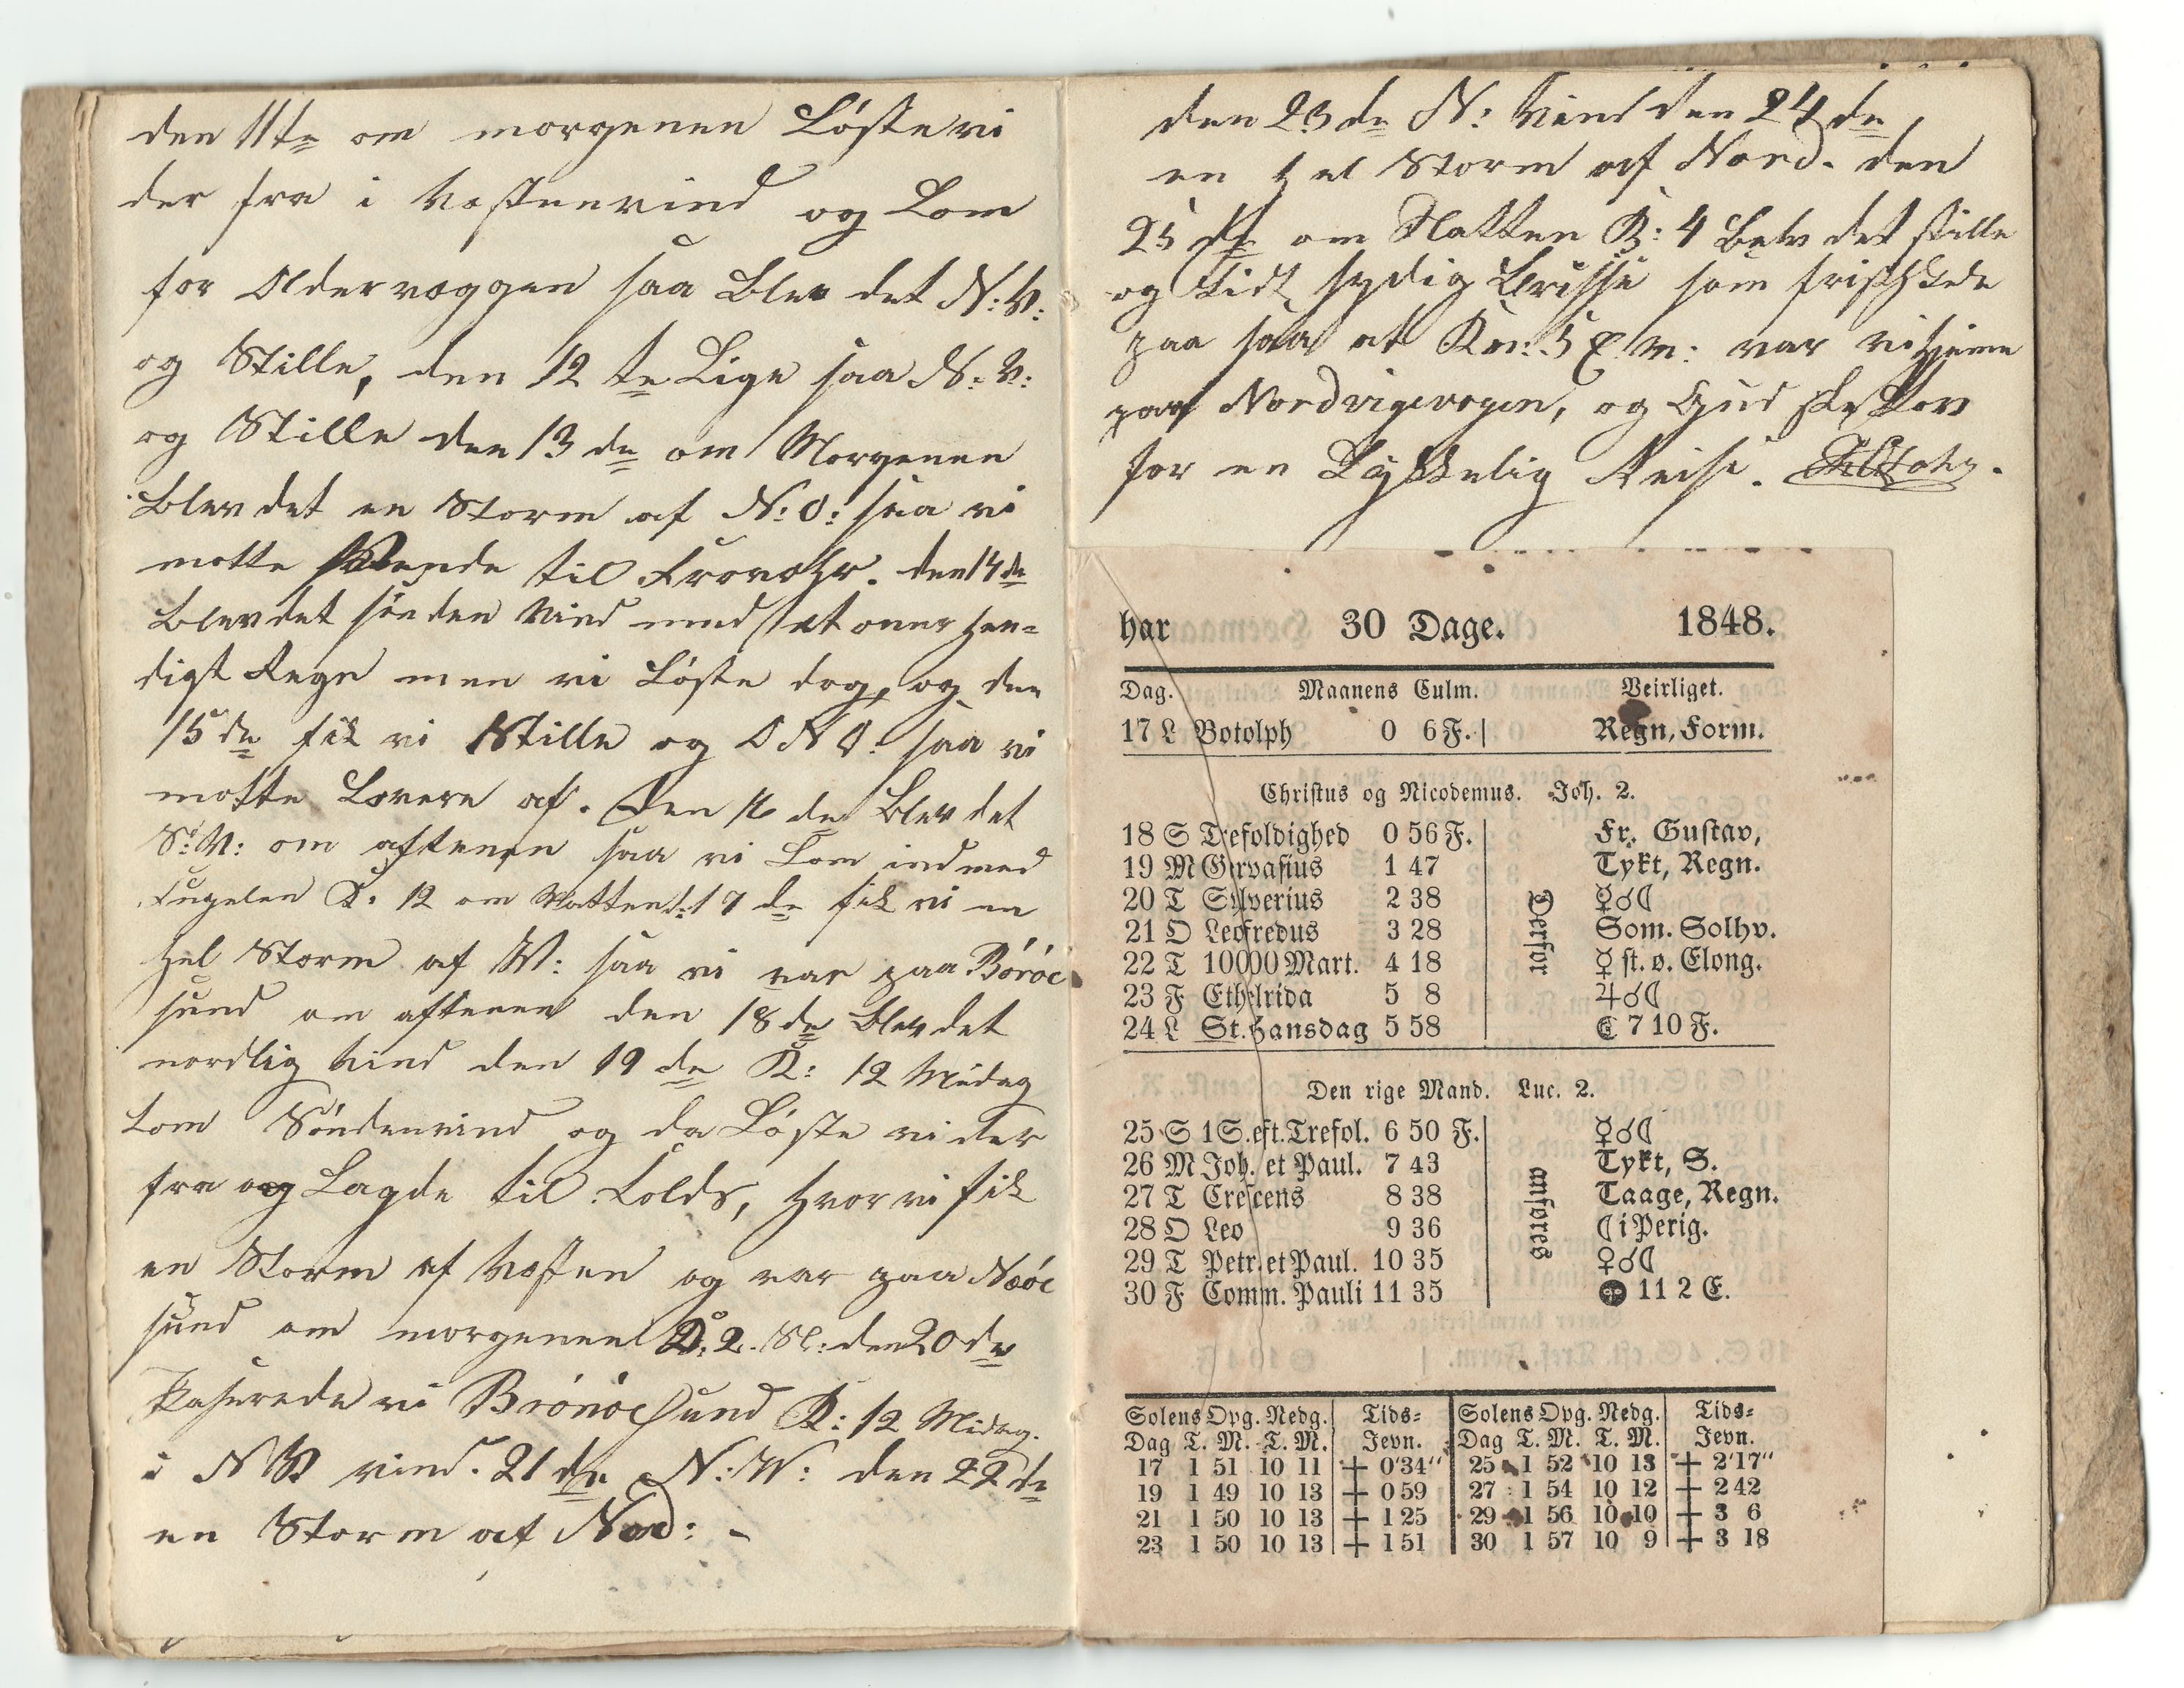 den 11te om morgenen Løste vi
der fra i Væstenvind og kom
for Oldervæggen saa Blev det N:V:
og Stille, den 12te Lige saa N:V:
og Stille den 13de om Morgenen
Blev det en Storm af N:O: saa vi
motte vende til den 14de
Blev det sønden Vind med et over hen-
digt Regn men vi Løste dog, og den
15de fik vi Stille og O N O: saa vi
motte Lovere af. Den 16de Blev det
S:V: om aftenen saa vi kom ind med
Fugelen K: 12 om Natten d: 17de fik vi en
hel Storm af V: saa vi var paa Börøe
sund om aftenen den 18de Blev det
nordlig vind den 19de K: 12 Midag
kom Söndenvind og da Løste vi der
fra og Lagde til Folda, hvor vi fik
en Storm af Væsten og var paa Nærøe
sund om morgenen K: 2. Sl: den 20de
Paserede vi Brönöe Sund K: 12 Midag.
i N V vind. 21de N:V: den 22de
en Storm af Nord: -
den 23de N: Vind den 24de
en hel Storm af Nord. den
25de om Natten K: 4 Belv det stille
og lidt sydlig Brisse som friskede
paa saa at Kl: 5 E. m: var vi hjeme
paa Nordvigevogen, og Gud ske Lov
for en Lykkelig Reise.
har 30 Dage. 1848.
Dag. Maanens Culm. Veirliget.
17 L Botolph 0 6 F. Regn, Form.
Christus og Nicodemus. Joh. 2.
18 S Trefoldighed 0 56 F. Fr. Gustav,
19 M Gervasius 1 47 Tykt, Regn.
20 T Silverius 2 38 ☿☌☾
21 O Leofredus 3 28 Derfor Som. Solhv.
22 T 10000 Mart. 4 18 ☿ st. ø. Elong.
23 F Ethelrida 5 8 ♃☌☾
24 L St. Hansdag 5 58 ☾ 7 10 F.
Den rige Mand. Luc. 2.
25 S 1 S. eft. Trefol. 6 50 F. ☿☌☾
26 M Joh. et Paul. 7 43 Tykt, S.
27 T Crescens 8 38 anføres Taage, Regn.
28 O Leo 9 36 ☾ i Perig.
29 T Petr. et Paul. 10 35 ♀☌☾
30 F Comm. Pauli 11 35 ● 11 2 E.
Solens Opg. Nedg. Tids- Solens Opg. Nedg. Tids-
Dag T. M. T. M. Jevn. Dag T. M. T. M. Jevn.
17 1 51 10 11 + 0'34" 25 1 52 10 13 + 2'17"
19 1 49 10 13 + 0 59 27 1 54 10 12 + 2 42
21 1 50 10 13 + 1 25 29 1 56 10 10 + 3 6
23 1 50 10 13 + 1 51 30 1 57 10 9 + 3 18